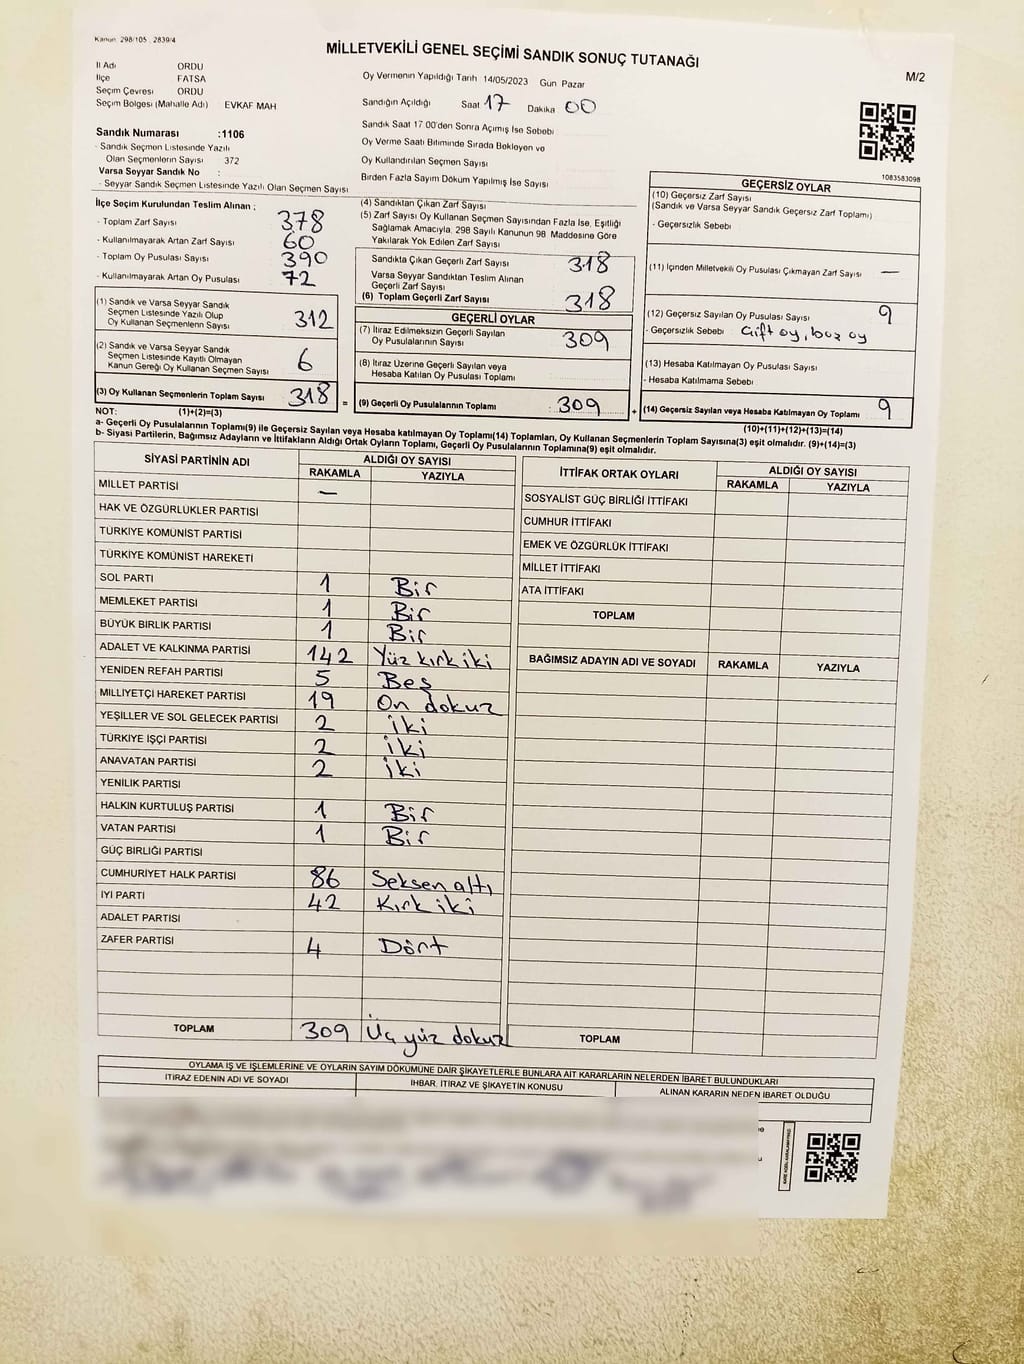 Kanun 298/105 , 2839/4
MİLLETVEKİLİ GENEL SEÇİMİ SANDIK SONUÇ TUTANAĞI
M/2
İl Adı ORDU
İlçe FATSA
Seçim Çevresi ORDU
Seçim Bölgesi (Mahalle Adı) EVKAF MAH
Sandık Numarası :1106
- Sandık Seçmen Listesinde Yazılı
Olan Seçmenlerin Sayısı 372
Varsa Seyyar Sandık No :
- Seyyar Sandık Seçmen Listesinde Yazılı Olan Seçmen Sayısı
Oy Vermenin Yapıldığı Tarih 14/05/2023 Gün Pazar
Sandığın Açıldığı Saat 17 Dakika 00
Sandık Saat 17 00'den Sonra Açımış İse Sebebi
Oy Verme Saati Bitiminde Sırada Bekleyen ve
Oy Kullandırılan Seçmen Sayısı
Birden Fazla Sayım Döküm Yapılmış İse Sayısı
1083583098
İlçe Seçim Kurulundan Teslim Alınan ;
- Toplam Zarf Sayısı 378
- Kullanılmayarak Artan Zarf Sayısı 60
- Toplam Oy Pusulası Sayısı 390
- Kullanılmayarak Artan Oy Pusulası 72
(1) Sandık ve Varsa Seyyar Sandık
Seçmen Listesinde Yazılı Olup
Oy Kullanan Seçmenlerin Sayısı 312
(2) Sandık ve Varsa Seyyar Sandık
Seçmen Listesinde Kayıtlı Olmayan
Kanun Gereği Oy Kullanan Seçmen Sayısı 6
(3) Oy Kullanan Seçmenlerin Toplam Sayısı 318 =
(4) Sandıktan Çıkan Zarf Sayısı
(5) Zarf Sayısı Oy Kullanan Seçmen Sayısından Fazla İse, Eşitliği
Sağlamak Amacıyla, 298 Sayılı Kanunun 98 Maddesine Göre
Yakılarak Yok Edilen Zarf Sayısı
Sandıkta Çıkan Geçerli Zarf Sayısı 318
Varsa Seyyar Sandıktan Teslim Alınan
Geçerli Zarf Sayısı
(6) Toplam Geçerli Zarf Sayısı 318
GEÇERLİ OYLAR
(7) İtiraz Edilmeksizin Geçerli Sayılan
Oy Pusulalarının Sayısı 309
(8) İtiraz Üzerine Geçerli Sayılan veya
Hesaba Katılan Oy Pusulası Toplamı
(9) Geçerli Oy Pusulalarının Toplamı : 309 +
GEÇERSİZ OYLAR
(10) Geçersiz Zarf Sayısı
(Sandık ve Varsa Seyyar Sandık Geçersiz Zarf Toplamı)
- Geçersizlik Sebebi
(11) İçinden Milletvekili Oy Pusulası Çıkmayan Zarf Sayısı —
(12) Geçersiz Sayılan Oy Pusulası Sayısı 9
- Geçersizlik Sebebi Çift oy, boş oy
(13) Hesaba Katılmayan Oy Pusulası Sayısı
- Hesaba Katılmama Sebebi
(14) Geçersiz Sayılan veya Hesaba Katılmayan Oy Toplamı 9
NOT: (1)+(2)=(3)
(10)+(11)+(12)+(13)=(14)
a- Geçerli Oy Pusulalarının Toplamı(9) ile Geçersiz Sayılan veya Hesaba katılmayan Oy Toplamı(14) Toplamları, Oy Kullanan Seçmenlerin Toplam Sayısına(3) eşit olmalıdır. (9)+(14)=(3)
b- Siyasi Partilerin, Bağımsız Adayların ve İttifakların Aldığı Ortak Oyların Toplamı, Geçerli Oy Pusulalarının Toplamına(9) eşit olmalıdır.
SİYASİ PARTİNİN ADI ALDIĞI OY SAYISI
RAKAMLA YAZIYLA
MİLLET PARTİSİ —
HAK VE ÖZGÜRLÜKLER PARTİSİ
TÜRKİYE KOMÜNİST PARTİSİ
TÜRKİYE KOMÜNİST HAREKETİ
SOL PARTİ 1 Bir
MEMLEKET PARTİSİ 1 Bir
BÜYÜK BİRLİK PARTİSİ 1 Bir
ADALET VE KALKINMA PARTİSİ 142 Yüz kırk iki
YENİDEN REFAH PARTİSİ 5 Beş
MİLLİYETÇİ HAREKET PARTİSİ 19 On dokuz
YEŞİLLER VE SOL GELECEK PARTİSİ 2 iki
TÜRKİYE İŞÇİ PARTİSİ 2 iki
ANAVATAN PARTİSİ 2 iki
YENİLİK PARTİSİ
HALKIN KURTULUŞ PARTİSİ 1 Bir
VATAN PARTİSİ 1 Bir
GÜÇ BİRLİĞİ PARTİSİ
CUMHURİYET HALK PARTİSİ 86 Seksen altı
İYİ PARTİ 42 Kırk iki
ADALET PARTİSİ
ZAFER PARTİSİ 4 Dört
TOPLAM 309 Üç yüz dokuz
İTTİFAK ORTAK OYLARI ALDIĞI OY SAYISI
RAKAMLA YAZIYLA
SOSYALİST GÜÇ BİRLİĞİ İTTİFAKI
CUMHUR İTTİFAKI
EMEK VE ÖZGÜRLÜK İTTİFAKI
MİLLET İTTİFAKI
ATA İTTİFAKI
TOPLAM
BAĞIMSIZ ADAYIN ADI VE SOYADI RAKAMLA YAZIYLA
TOPLAM
OYLAMA İŞ VE İŞLEMLERİNE VE OYLARIN SAYIM DÖKÜMÜNE DAİR ŞİKAYETLERLE BUNLARA AİT KARARLARIN NELERDEN İBARET BULUNDUKLARI
İTİRAZ EDENİN ADI VE SOYADI İHBAR, İTİRAZ VE ŞİKAYETİN KONUSU ALINAN KARARIN NEDEN İBARET OLDUĞU